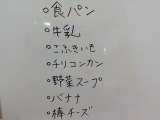 ○食パン
○牛乳
○こふきいも
○チリコンカン
○野菜スープ
○バナナ
○棒チーズ